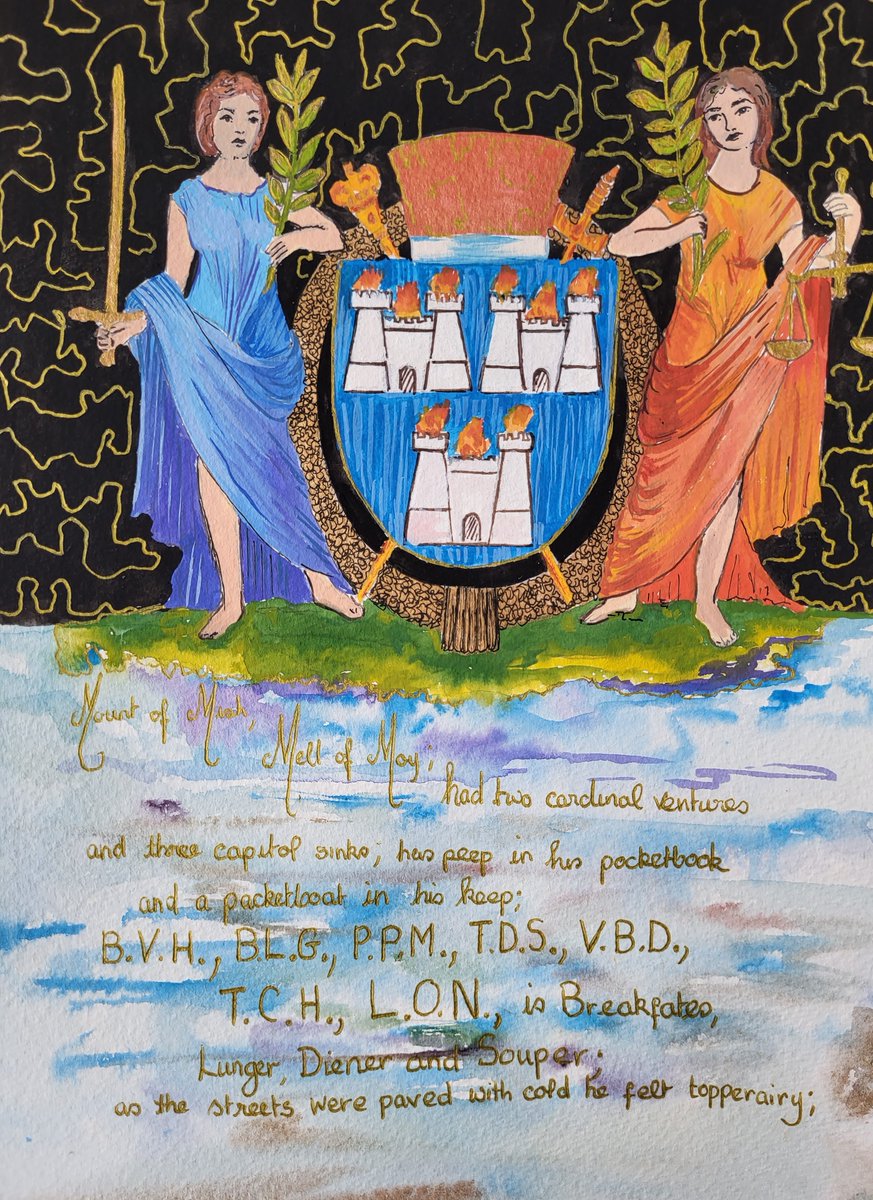 Mount of Mish,
Mell of Moy;
had two cardinal ventures
and three capitol sinks; has peep in his pocketbook
and a packetboat in his keep;
B.V.H., B.L.G., P.P.M., T.D.S., V.B.D.,
T.C.H., L.O.N., is Breakfates,
Lunger, Diener and Souper;
as the streets were paved with cold he felt topperairy;